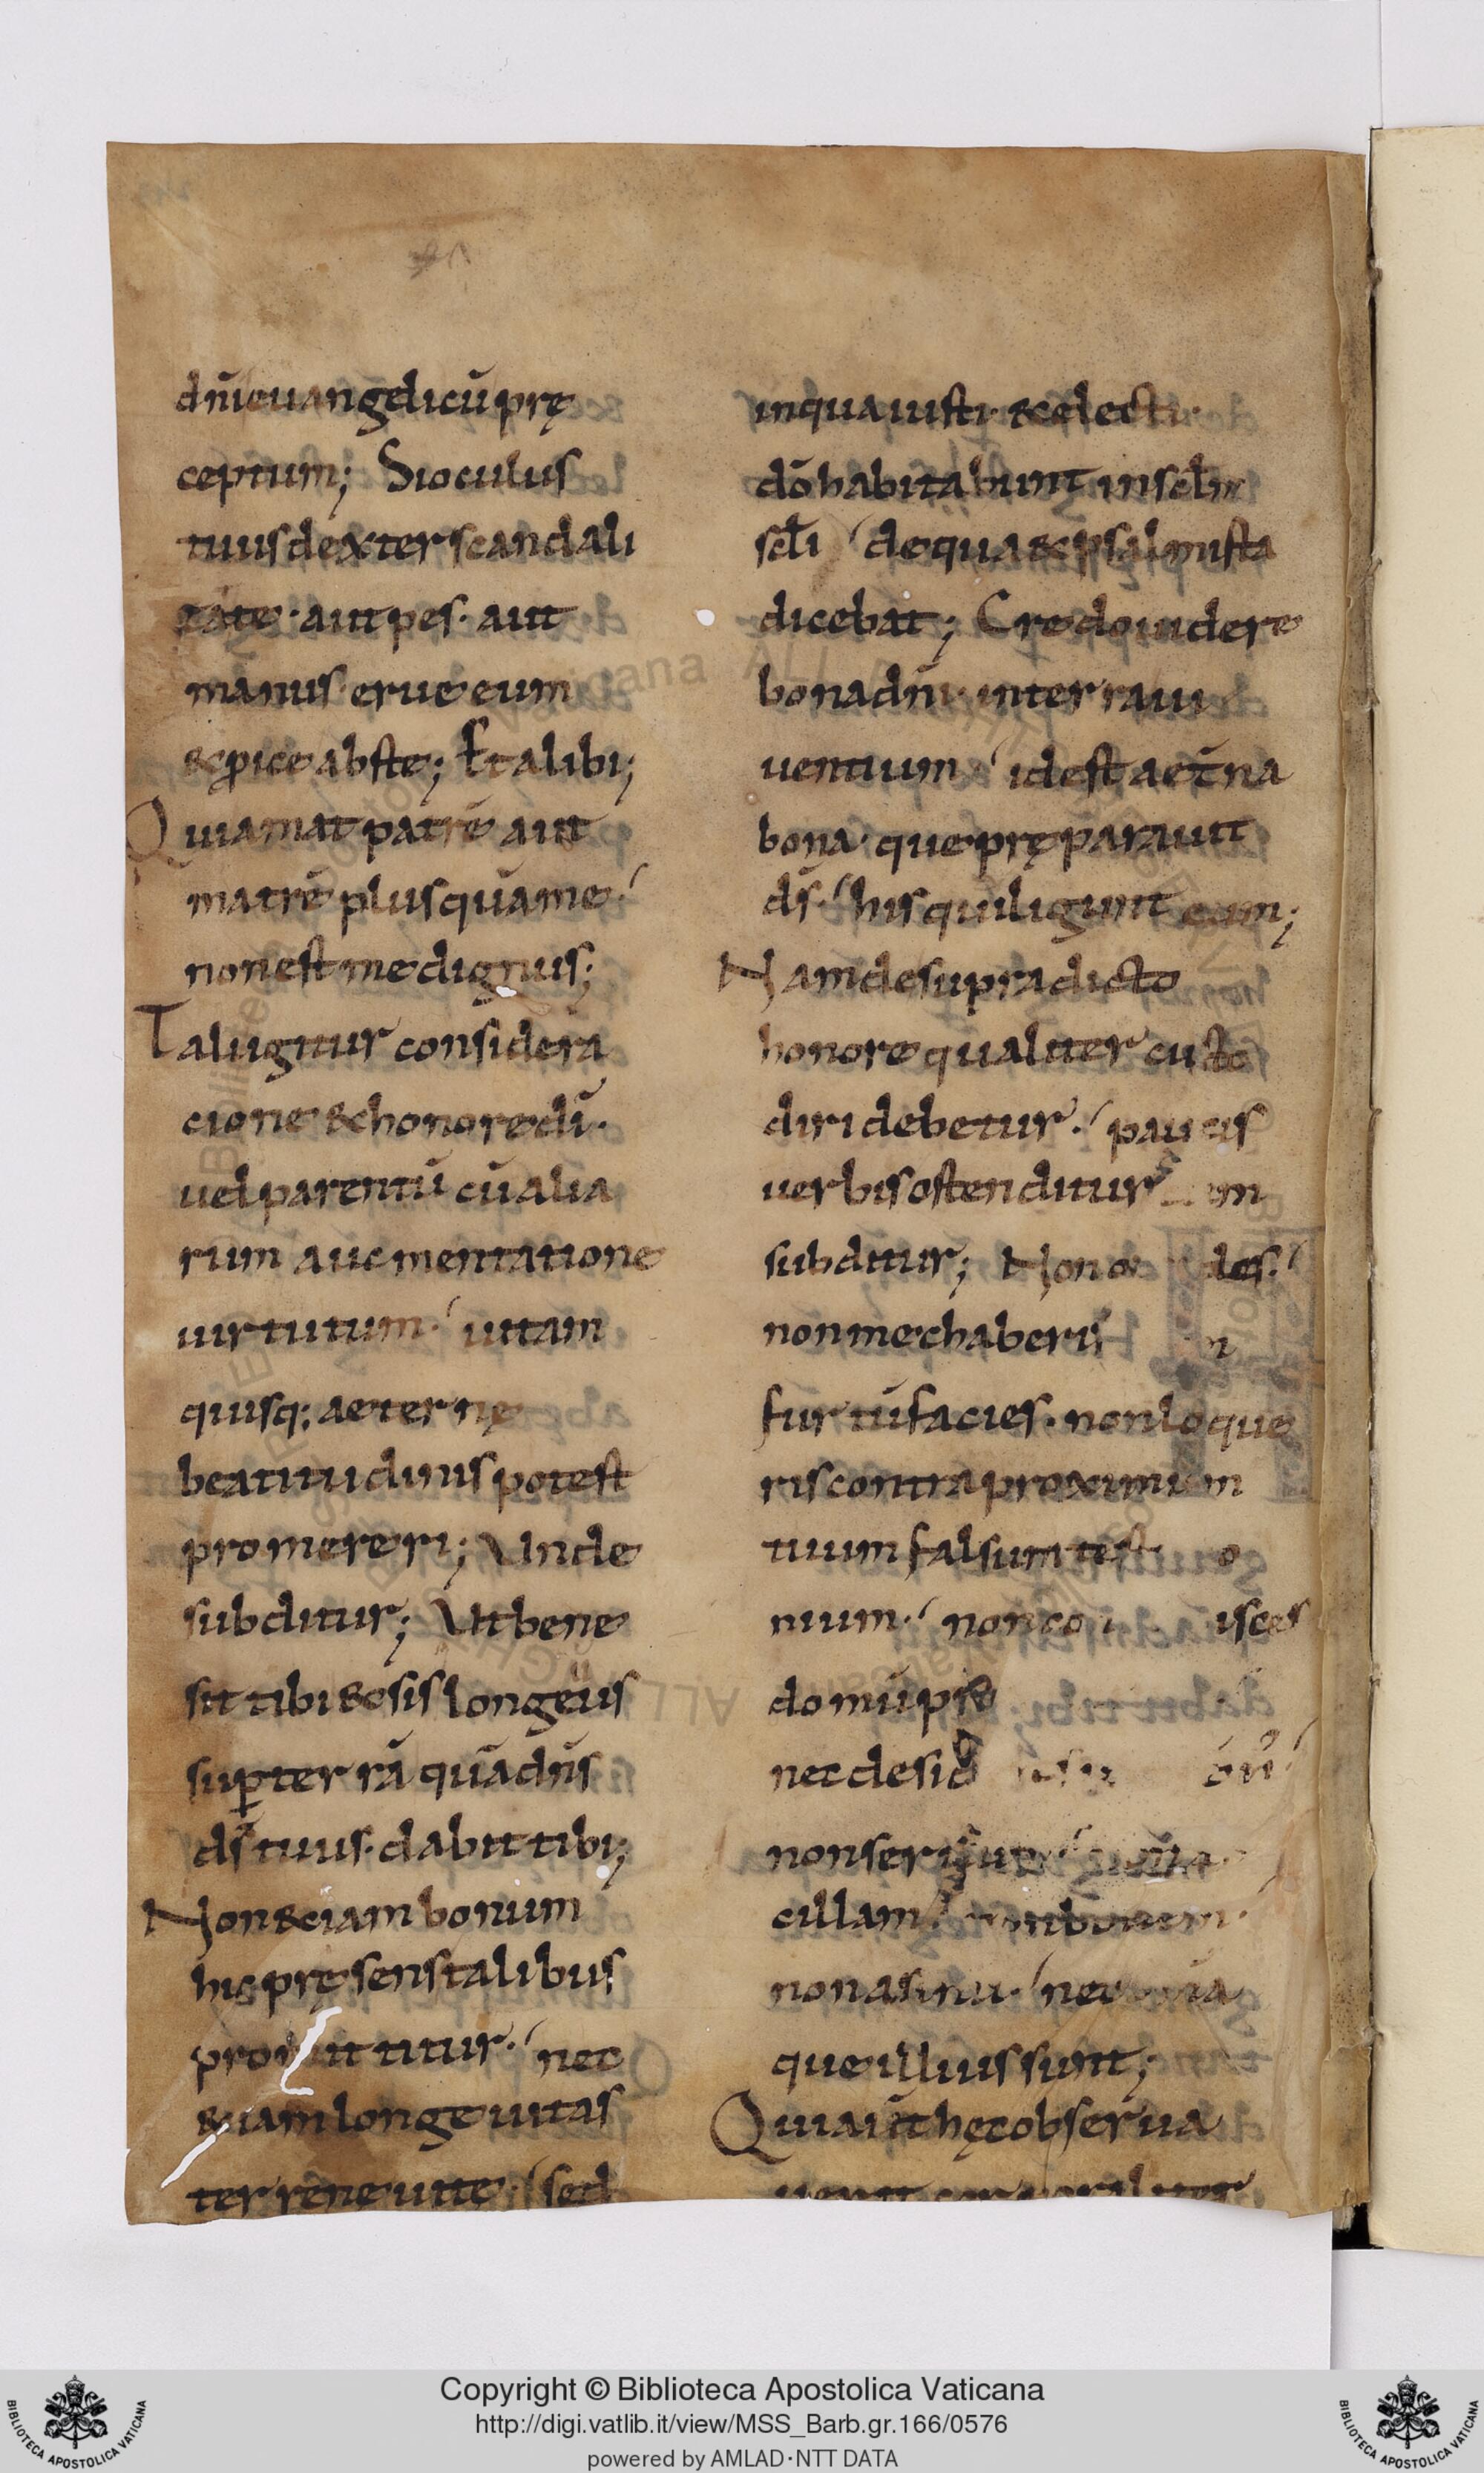 dn̄i euangelicū prę
ceptum; Si oculus
tuus dexter scandali
zat te · aut pes · aut
manus · erue eum
& ꝓice abs te; Et alibi;
Qui amat patrē aut
matrē plus quā me ·
non est me dignus;
Tali igitur considera
cione & honore dī ·
uel parentū cū alia
rum aucmentatione
uirtutum · uitam
quisq; aeternę
beatitudinis potest
promereri; Unde
subditur; Ut bene
sit tibi & sis longeuus
suꝑ terrā quā dn̄s
ds̄ tuus · dabit tibi;
Non &iam bonum
hic pręsens talibus
promittitur · nec
&iam longeuitas
terrene uite · sed
in qua iusti · & electi ·
dō habitabunt in sc̄lm
sc̄li de qua & psalmista
dicebat; Credo uidere
bona dn̄i · in terra ui
uentium id est aet̄na
bona · que pręparauit
ds̄ · his qui ligunt eum;
Nam de supradicto
honore qualiter custo
diri debetur · paucis
uerbis ostenditur
subditur; Non occides ·
non mechaberis
furtū facies · non loque
ris contra proximum
tuum falsum testimo
nium · non concupisces
domū
nec desid
non seruū
cillam non bouem ·
non asinū · nec omnia
que illius sunt;
Qui aūt hęc obserua